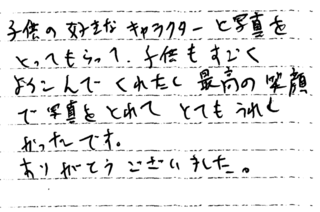 子供の好きなキャラクターと写真を
とってもらって、子供もすごく
よろこんでくれたし最高の笑顔
で写真をとれてとてもうれし
かったです。
ありがとうございました。